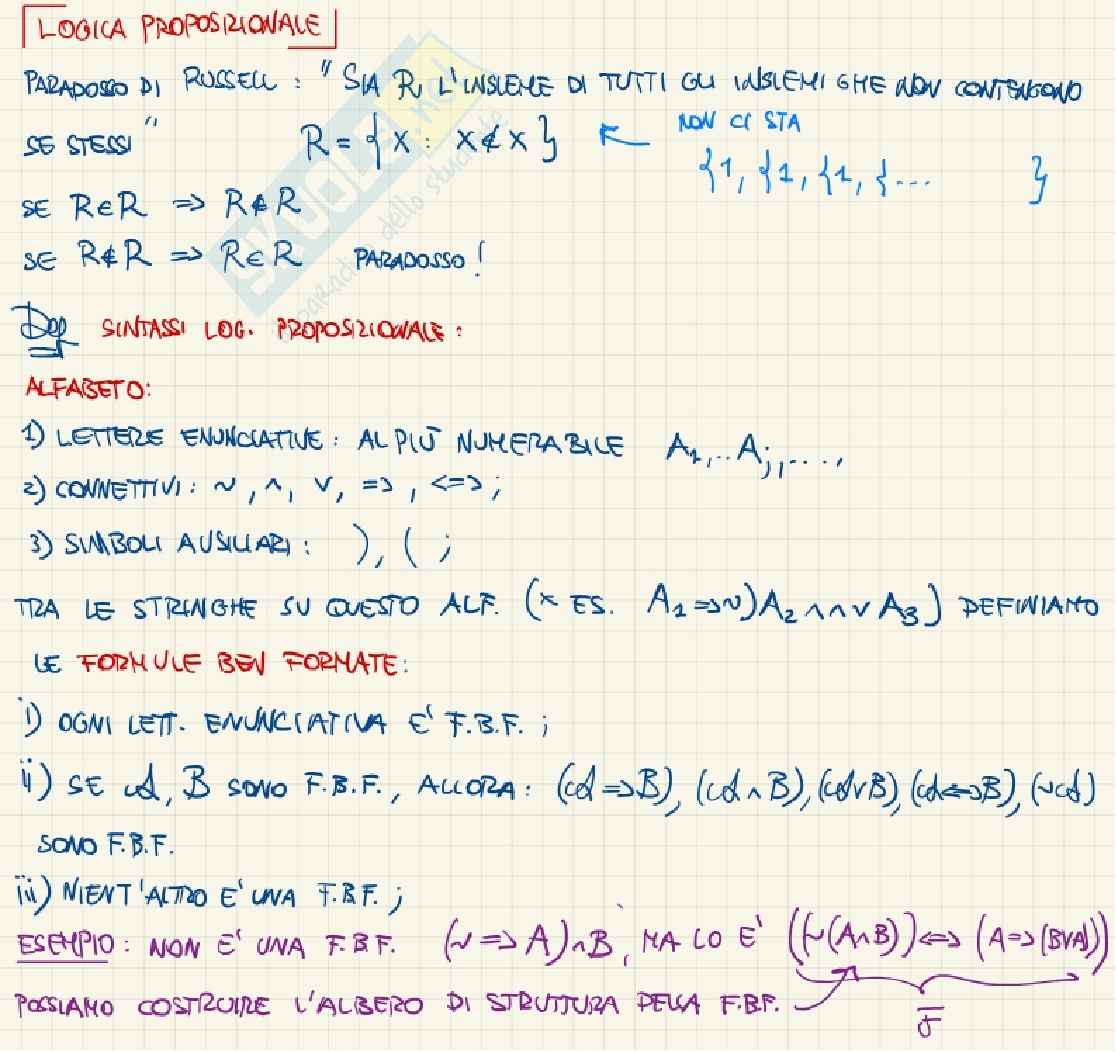 LOGICA PROPOSIZIONALE
PARADOSSO DI RUSSELL : "SIA R L'INSIEME DI TUTTI GLI INSIEMI CHE NON CONTENGONO
SE STESSI" R = { x : x ∉ x } ← NON CI STA
{1, {1, {1, {... }
SE R ∈ R => R ∉ R
SE R ∉ R => R ∈ R PARADOSSO!
Def SINTASSI LOG. PROPOSIZIONALE :
ALFABETO:
1) LETTERE ENUNCIATIVE : AL PIÙ NUMERABILE A₁,..Aⱼ,...,
2) CONNETTIVI : ~, ∧, ∨, =>, <=> ;
3) SIMBOLI AUSILIARI : ), ( ;
TRA LE STRINGHE SU QUESTO ALF. (x ES. A₁ => ~)A₂ ∧ ∧ ∨ A₃) DEFINIAMO
LE FORMULE BEN FORMATE:
i) OGNI LETT. ENUNCIATIVA E' F.B.F. ;
ii) SE A, B SONO F.B.F., ALLORA : (A => B), (A ∧ B), (A ∨ B), (A <=> B), (~A)
SONO F.B.F.
iii) NIENT'ALTRO E' UNA F.B.F. ;
ESEMPIO : NON E' UNA F.B.F. (~ => A) ∧ B, MA LO E' ((~(A ∧ B)) <=> (A => (B ∨ A)))
POSSIAMO COSTRUIRE L'ALBERO DI STRUTTURA DELLA F.B.F.
SKUOLA.net
paradiso dello studente